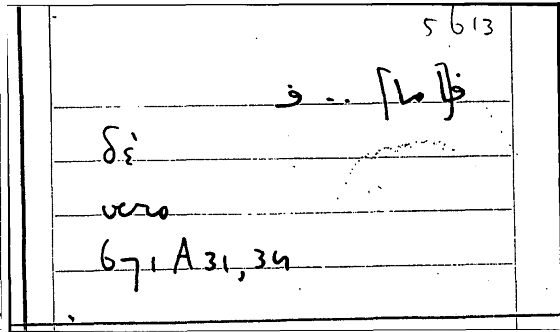 5613
ف[ما] .. ف
δέ
vero
671 A 31, 34